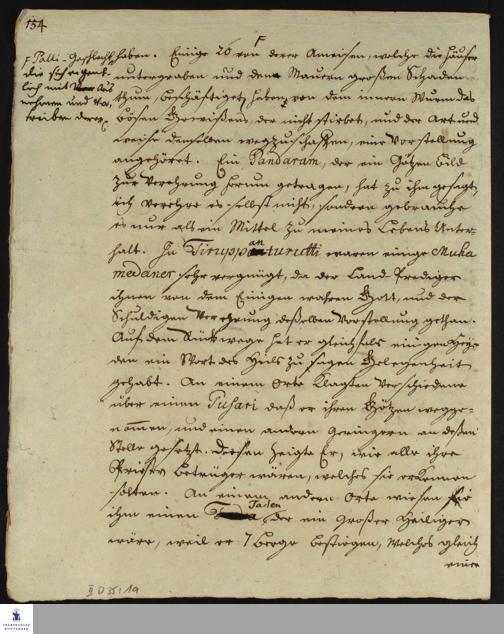 154
F Palli-Geschlecht,
die sich eigent-
lich mit
nehmen und
treiben derer
F
haben. Einige 20 von derer Ameisen, welche die Häuser
untergraben und den Mauern großen Schaden
thun, beschäftiget haben, von dem innern Wurm des
bösen Gewißens, der nicht stirbet, und der Art und
weise denselben wegzuschaffen, eine Vorstellung
angehöret. Ein Pandaram, der ein Götzen Bild
zur Verehrung herum getragen, hat zu ihm gesagt,
ich verehre es selbst nicht, sondern gebrauche
es nur als ein Mittel zu meines Lebens Unter-
halt. In Tiruppanturutti waren einige Muha
medaner sehr vergnügt, da der Land Prediger
ihnen von dem Einigen wahren Gott, und der
Schuldigen Verehrung deßelben Vorstellung gethan.
Auf dem Rückwege hat er gleichfals einigen Hey-
den ein Wort des Heils zu sagen Gelegenheit
gehabt. An einem Orte klagten Verschiedene
über einen Pusari daß er ihren Götzen wegge-
nommen, und einen andern geringern an deßen
Stelle gesetzt. Diesen zeigte Er, wie alle ihre
Priester Betrüger wären, welches sie erkennen
solten. An einem andern Orte wiesen sie
ihm einen Taden, der ein großer Heiliger
wäre, weil er 7 Berge bestiegen, welches gleich
einer
II D 35:19
FRANCKESCHE
STIFTUNGEN